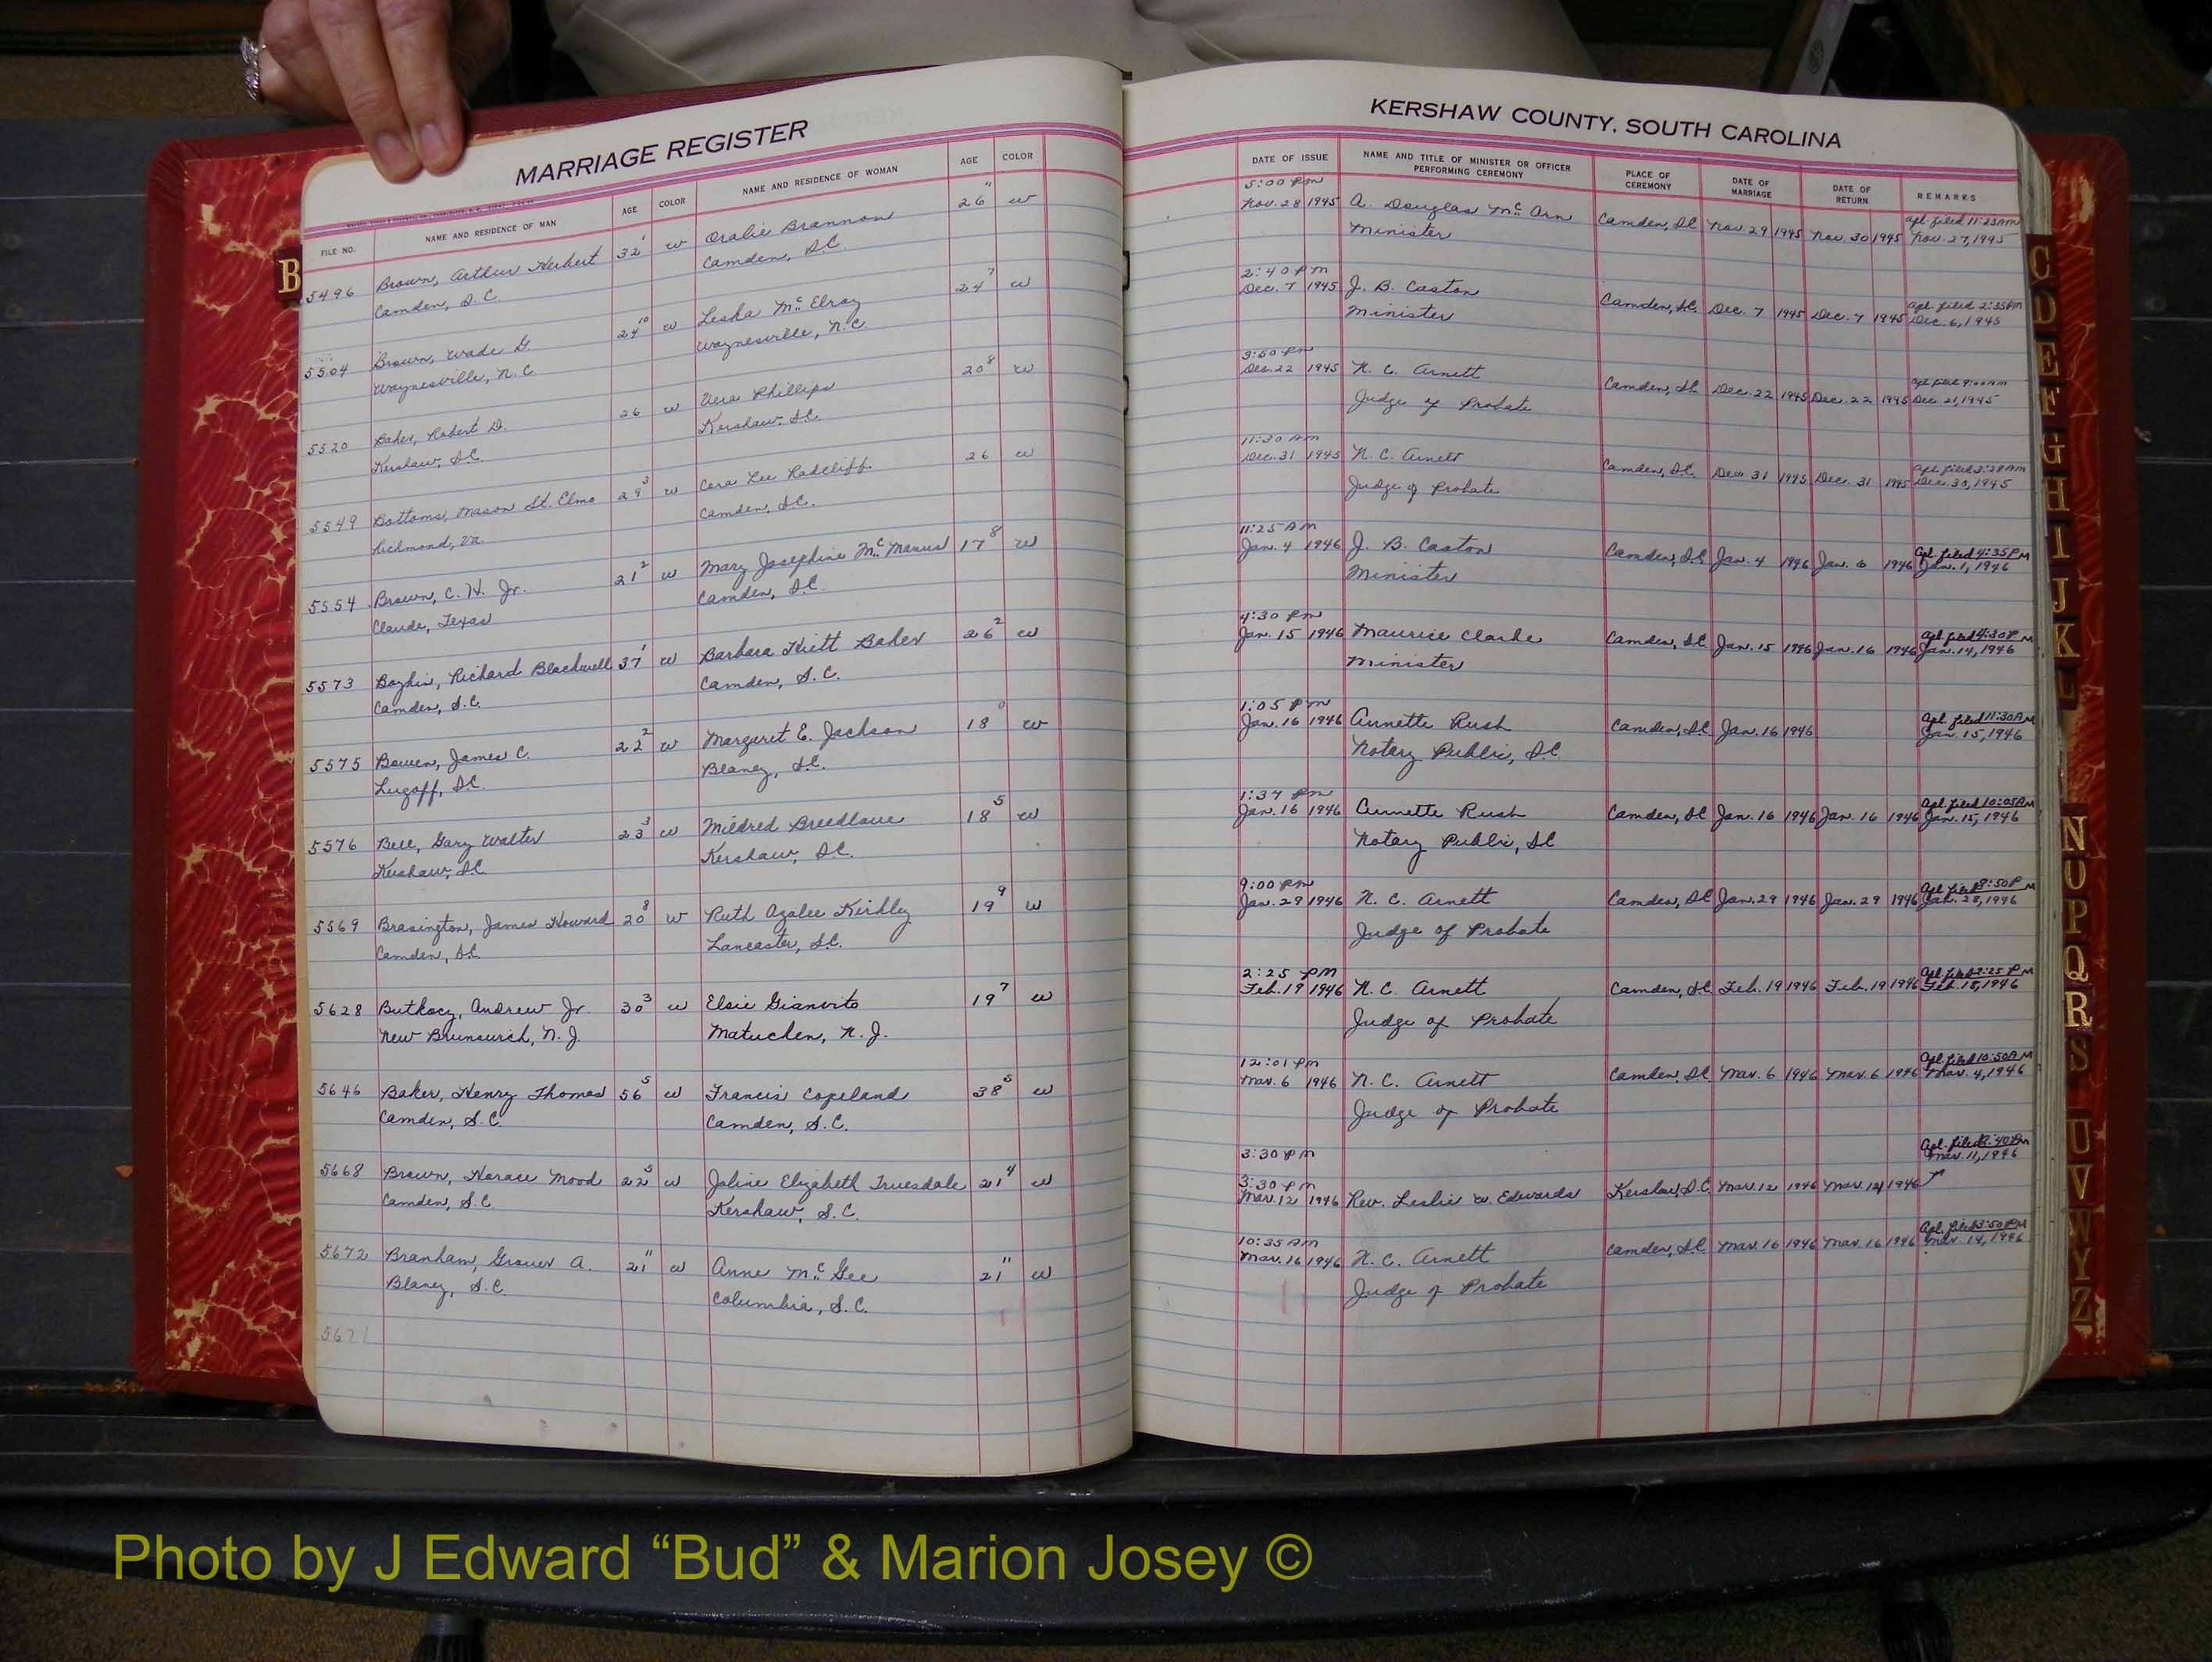 MARRIAGE REGISTER
FILE NO. NAME AND RESIDENCE OF MAN AGE COLOR NAME AND RESIDENCE OF WOMAN AGE COLOR
B
5496 Brown, Arthur Herbert 32 1 w Oralie Brannon 26 11 w
Camden, S.C. Camden, S.C.
5504 Brown, Wade G. 24 10 w Leska McElroy 24 7 w
Waynesville, N.C. Waynesville, N.C.
5520 Baker, Robert D. 26 w Vera Phillips 20 8 w
Kershaw, S.C. Kershaw, S.C.
5549 Bottoms, Mason St. Elmo 29 3 w Cora Lee Radcliff 26 w
Richmond, Va. Camden, S.C.
5554 Brown, C. H. Jr. 21 2 w Mary Josephine McManus 17 8 w
Claude, Texas Camden, S.C.
5573 Boykin, Richard Blackwell 37 1 w Barbara Baker 26 2 w
Camden, S.C. Camden, S.C.
5575 Bowen, James C. 22 2 w Margaret E. Jackson 18 0 w
Lugoff, S.C. Blaney, S.C.
5576 Bell, Gary Walter 23 3 w Mildred Breedlove 18 5 w
Kershaw, S.C. Kershaw, S.C.
5569 Brasington, James Howard 20 8 w Ruth Azalee Kirkley 19 9 w
Camden, S.C. Lancaster, S.C.
5628 Butkocy, Andrew Jr. 30 3 w Elsie Gianvito 19 7 w
New Brunswick, N.J. Matuchen, N.J.
5646 Baker, Henry Thomas 56 5 w Francis Copeland 38 5 w
Camden, S.C. Camden, S.C.
5668 Brown, Horace Mood 22 5 w Joline Elizabeth Truesdale 21 4 w
Camden, S.C. Kershaw, S.C.
5672 Branham, Grover A. 21 11 w Anne McGee 21 11 w
Blaney, S.C. Columbia, S.C.
5671
KERSHAW COUNTY, SOUTH CAROLINA
DATE OF ISSUE NAME AND TITLE OF MINISTER OR OFFICER PERFORMING CEREMONY PLACE OF CEREMONY DATE OF MARRIAGE DATE OF RETURN REMARKS
5:00 PM apl. filed 11:25 AM
Nov. 28 1945 A. Douglas McArn Camden, S.C. Nov. 29 1945 Nov. 30 1945 Nov. 27, 1945
Minister
2:40 PM apl. filed 2:35 PM
Dec. 7 1945 J. B. Caston Camden, S.C. Dec. 7 1945 Dec. 7 1945 Dec. 6, 1945
Minister
3:50 PM apl. filed 9:00 AM
Dec. 22 1945 N. C. Arnett Camden, S.C. Dec. 22 1945 Dec. 22 1945 Dec. 21, 1945
Judge of Probate
11:30 AM apl. filed 3:28 AM
Dec. 31 1945 N. C. Arnett Camden, S.C. Dec. 31 1945 Dec. 31 1945 Dec. 30, 1945
Judge of Probate
11:25 AM Apl. filed 4:35 PM
Jan. 4 1946 J. B. Caston Camden, S.C. Jan. 4 1946 Jan. 6 1946 Jan. 1, 1946
Minister
4:30 PM Apl. filed 4:30 PM
Jan. 15 1946 Maurice Clarke Camden, S.C. Jan. 15 1946 Jan. 16 1946 Jan. 14, 1946
Minister
1:05 PM Apl. filed 11:30 AM
Jan. 16 1946 Annette Rush Camden, S.C. Jan. 16 1946 Jan. 15, 1946
Notary Public, S.C.
1:37 PM Apl. filed 10:05 AM
Jan. 16 1946 Annette Rush Camden, S.C. Jan. 16 1946 Jan. 16 1946 Jan. 15, 1946
Notary Public, S.C.
9:00 PM Apl. filed 8:50 P M
Jan. 29 1946 N. C. Arnett Camden, S.C. Jan. 29 1946 Jan. 29 1946 Jan. 28, 1946
Judge of Probate
2:25 PM Apl. filed 2:25 PM
Feb. 19 1946 N. C. Arnett Camden, S.C. Feb. 19 1946 Feb. 19 1946 Feb. 18, 1946
Judge of Probate
12:01 PM Apl. filed 10:50 AM
Mar. 6 1946 N. C. Arnett Camden, S.C. Mar. 6 1946 Mar. 6 1946 Mar. 4, 1946
Judge of Probate
3:30 PM Apl. filed 40 PM
Mar. 11, 1946
3:30 PM
Mar. 12 1946 Rev. Leslie W. Edwards Kershaw, S.C. Mar. 12 1946 Mar. 12 1946
10:35 AM Apl. filed 3:50 PM
Mar. 16 1946 N. C. Arnett Camden, S.C. Mar. 16 1946 Mar. 16 1946 Mar. 14, 1946
Judge of Probate
C
D
E
F
G
H
I
J
K
L
N
O
P
Q
R
S
U
V
W
Y
Z
Photo by J Edward “Bud” & Marion Josey ©